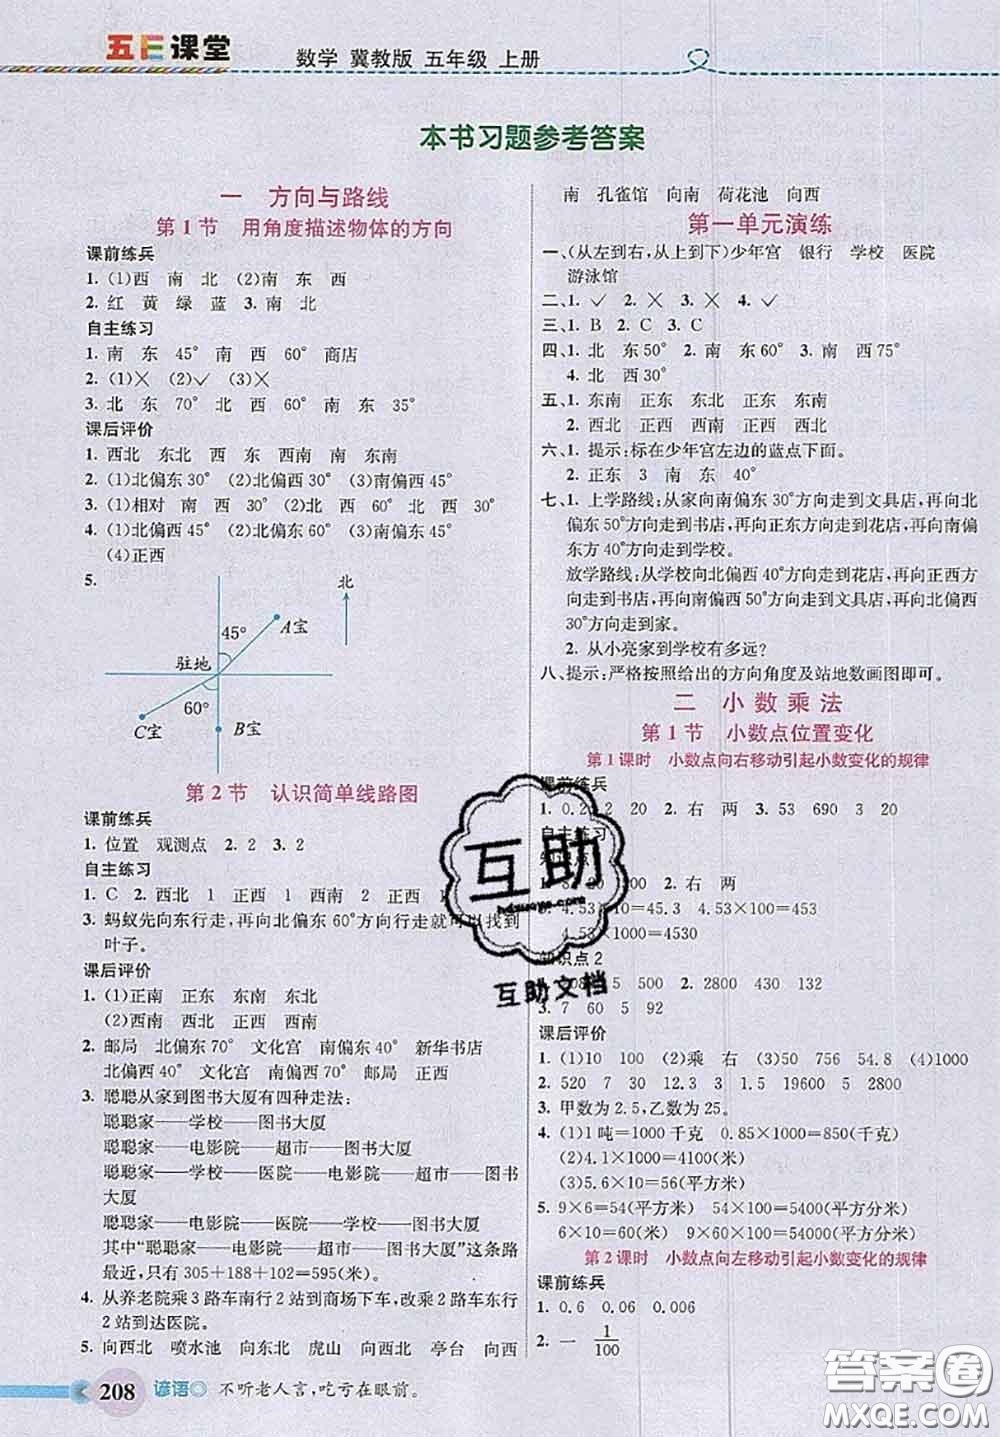 五E课堂
数学 冀教版 五年级 上册
本书习题参考答案
一 方向与路线
第1节 用角度描述物体的方向
课前练兵
1. (1)西 南 北 (2)南 东 西
2. 红 黄 绿 蓝 3. 南 北
自主练习
1. 南 东 45° 南 西 60° 商店
2. (1)× (2)✓ (3)×
3. 北 东 70° 北 西 60° 南 东 35°
课后评价
1. 西北 东北 西 东 西南 南 东南
2. (1)北偏东30° (2)北偏西30° (3)南偏西45°
3. (1)相对 南 西 30° (2)北 西 60° 北 西 30°
4. (1)北偏西45° (2)北偏东60° (3)南偏西30°
(4)正西
5.
北
45°
A宝
驻地
60°
C宝
B宝
第2节 认识简单线路图
课前练兵
1. 位置 观测点 2. 2 3. 2
自主练习
1. C 2. 西北 1 正西 1 西南 2 正西 1
3. 蚂蚁先向东行走,再向北偏东60°方向行走就可以找到
叶子。
课后评价
1. (1)正南 正东 东南 东北
(2)西南 西北 正西 西南
2. 邮局 北偏东70° 文化宫 南偏东40° 新华书店
北偏西40° 文化宫 南偏西70° 邮局 正西
3. 聪聪从家到图书大厦有四种走法:
聪聪家——学校——图书大厦
聪聪家——电影院——超市——图书大厦
聪聪家——学校——医院——电影院——超市——图书
大厦
聪聪家——电影院——医院——学校——图书大厦
其中“聪聪家——电影院——超市——图书大厦”这条路
最近,只有305+188+102=595(米)。
4. 从养老院乘3路车南行2站到商场下车,改乘2路车东行
2站到达医院。
5. 向西北 喷水池 向东北 虎山 向西北 亭台 向西
208 谚语 不听老人言,吃亏在眼前。
南 孔雀馆 向南 荷花池 向西
第一单元演练
一、(从左到右,从上到下)少年宫 银行 学校 医院
游泳馆
二、1. ✓ 2. × 3. × 4. ✓
三、1. B 2. C 3. C
四、1. 北 东50° 2. 南 东60° 3. 南 西75°
4. 北 西30°
五、1. 东南 正东 东北 正东 东南
2. 西北 正西 西南 正西 西北
六、1. 提示:标在少年宫左边的蓝点下面。
2. 正东 3 南 东 40°
七、1. 上学路线:从家向南偏东30°方向走到文具店,再向北
偏东50°方向走到书店,再向正东方向走到花店,再向南偏
东方40°方向走到学校。
放学路线:从学校向北偏西40°方向走到花店,再向正西方
向走到书店,再向南偏西50°方向走到文具店,再向北偏西
30°方向走到家。
2. 从小亮家到学校有多远?
八、提示:严格按照给出的方向角度及站地数画图即可。
二 小数乘法
第1节 小数点位置变化
第1课时 小数点向右移动引起小数变化的规律
课前练兵
1. 0.2 2 20 2. 右 两 3. 53 690 3 20
自主练习
2. 右 两
4.53×10=45.3 4.53×100=453
4.53×1000=4530
知识点2
5 500 2. 2800 430 132
3. 7 60 5 92
课后评价
1. (1)10 100 (2)乘 右 (3)50 756 54.8 (4)1000
2. 520 7 30 12.3 3 1.5 19600 5 2800
3. 甲数为2.5,乙数为25。
4. (1)1吨=1000千克 0.85×1000=850(千克)
(2)4.1×1000=4100(米)
(3)5.6×10=56(平方米)
5. 9×6=54(平方米) 54×100=5400(平方分米)
6×10=60(米) 9×60×10=5400(平方分米)
第2课时 小数点向左移动引起小数变化的规律
课前练兵
1. 0.6 0.06 0.006
2. 一 1/100
互助
互助文档
答案圈
MXQE.COM